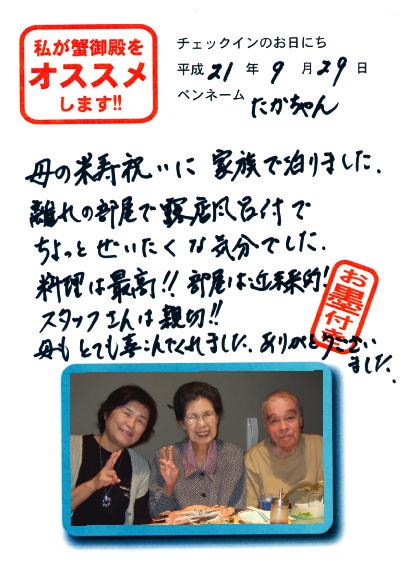 私が蟹御殿を
オススメ
します!!
チェックインのお日にち
平成 21 年 9 月 29 日
ペンネーム たかちゃん
母の米寿祝いに 家族で泊りました.
離れの部屋で 露店風呂付で
ちょっと ぜいたくな気分でした.
料理は最高!! 部屋は近未来的!
スタッフさんは親切!!
母も とても喜こんでくれました. ありがとうござい
ました.
お墨付き